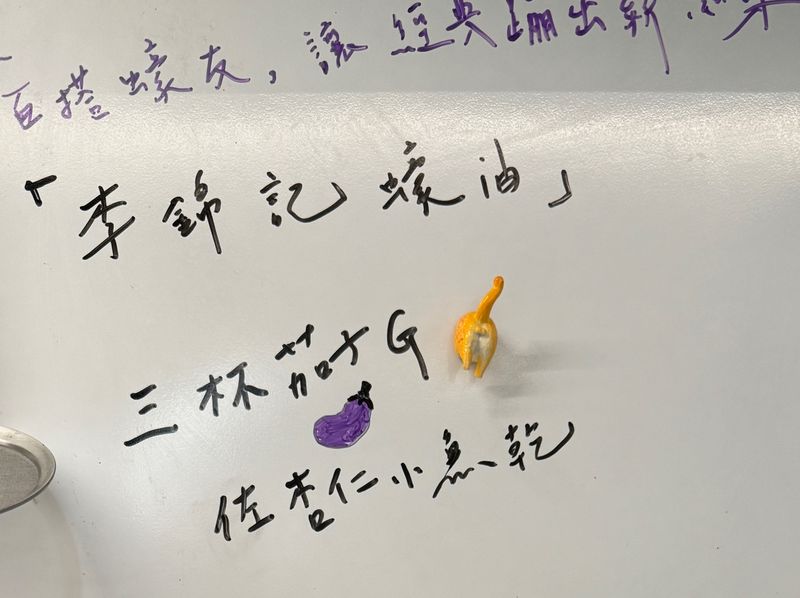 百搭蠔友，讓經典蹦出新
「李錦記蠔油」
三杯茄子G
佐杏仁小魚乾